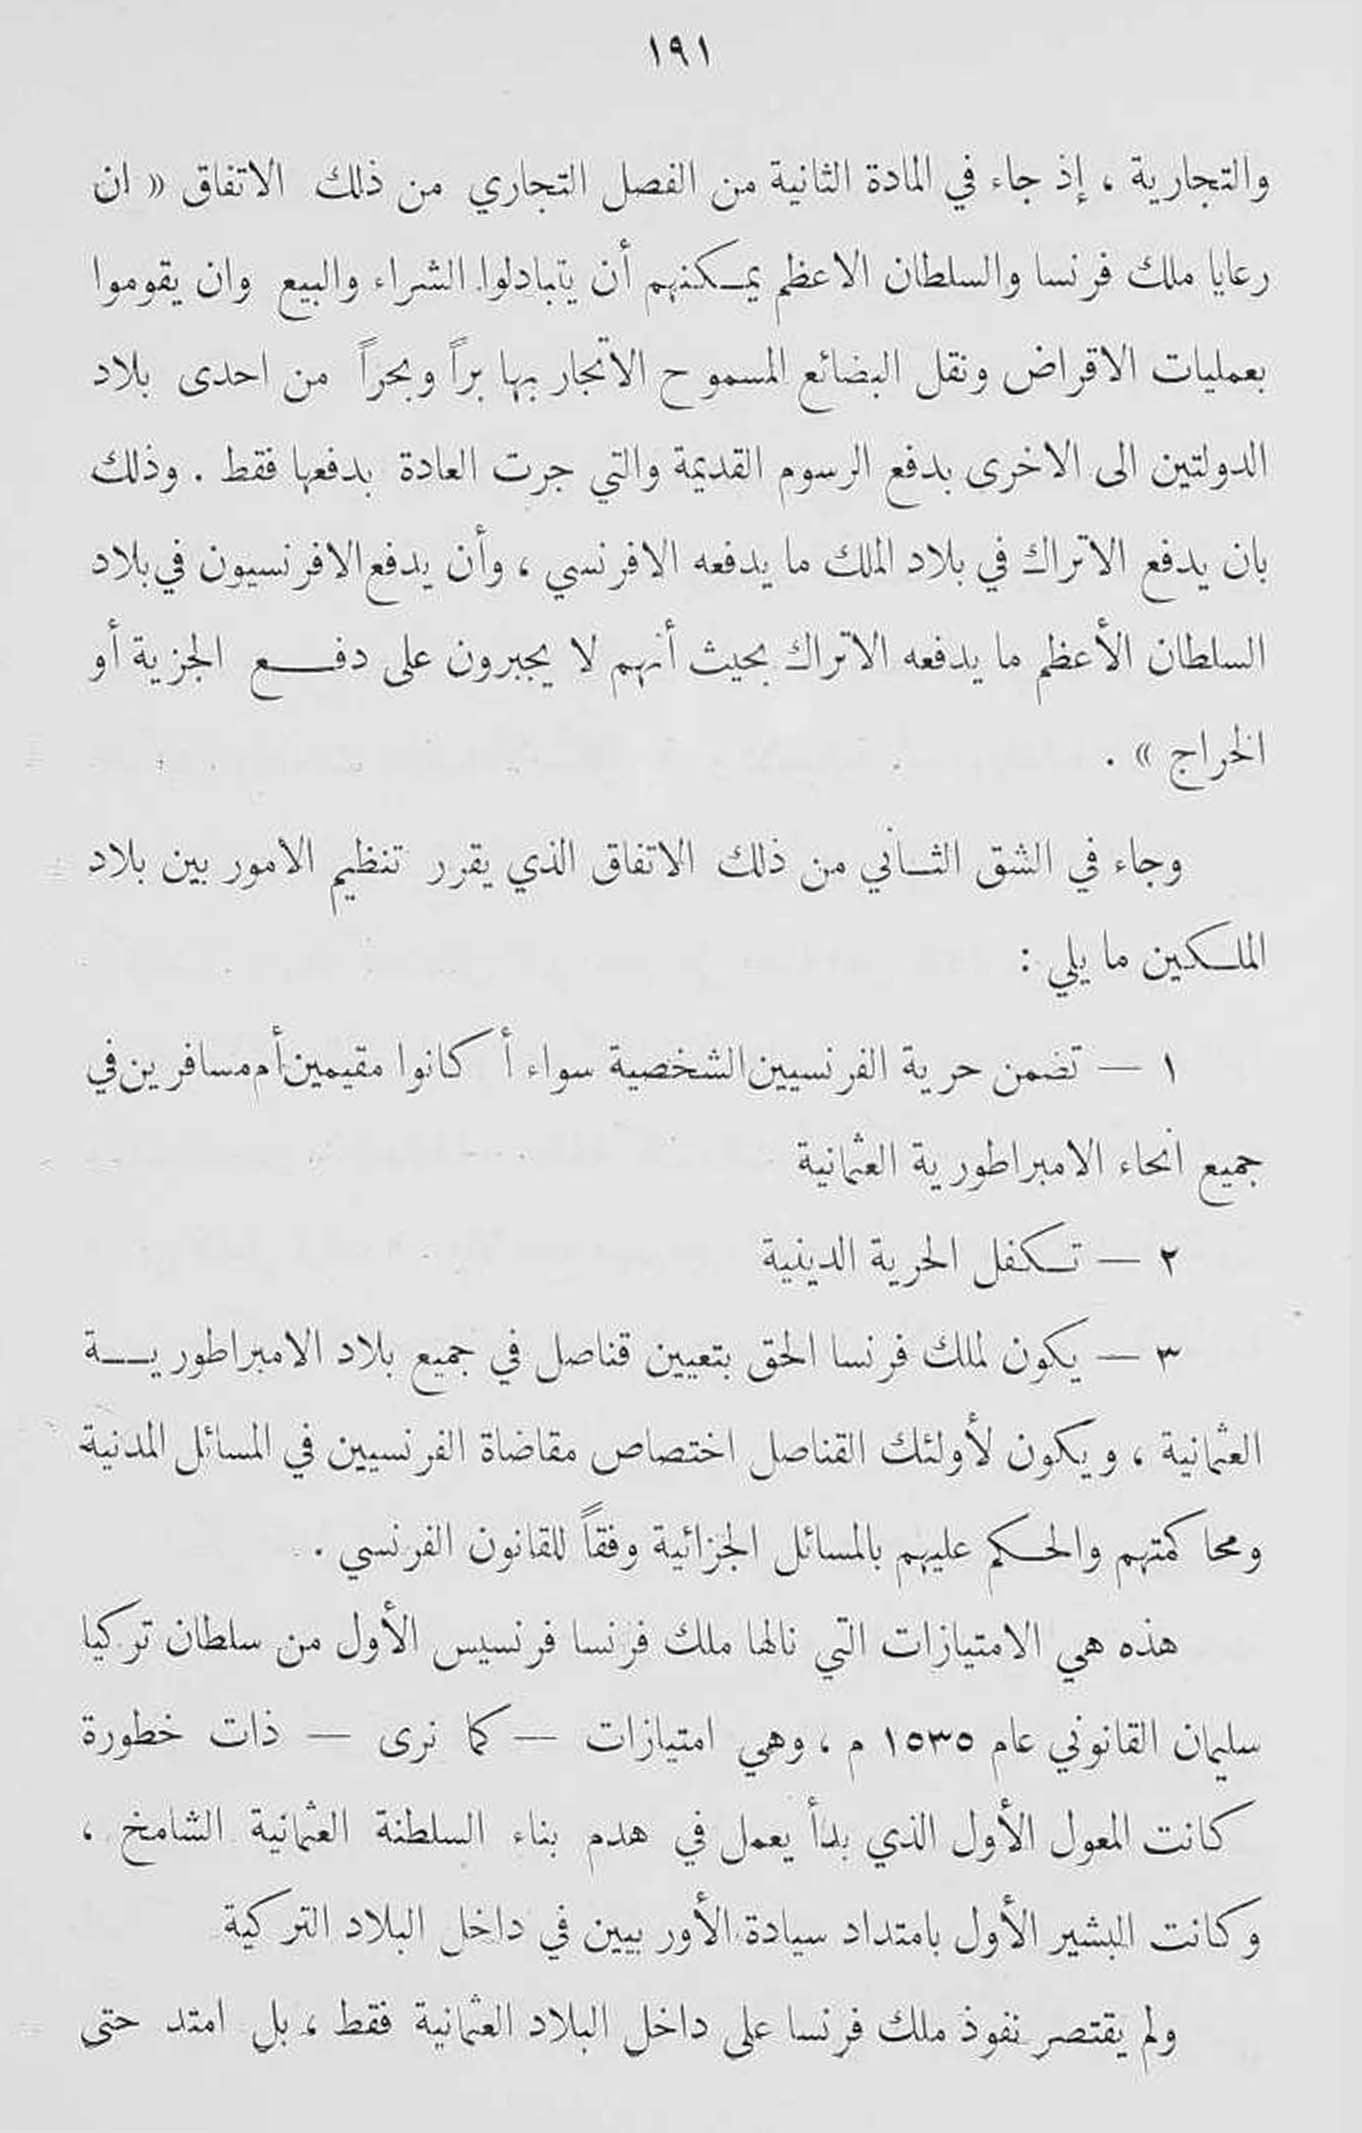 ١٩١
والتجارية ، إذ جاء في المادة الثانية من الفصل التجاري من ذلك الاتفاق « ان
رعايا ملك فرنسا والسلطان الاعظم يمكنهم أن يتبادلوا الشراء والبيع وان يقوموا
بعمليات الاقراض ونقل البضائع المسموح الاتجار بها براً وبحراً من احدى بلاد
الدولتين الى الاخرى بدفع الرسوم القديمة والتي جرت العادة بدفعها فقط . وذلك
بان يدفع الاتراك في بلاد الملك ما يدفعه الافرنسي ، وأن يدفع الافرنسيون في بلاد
السلطان الأعظم ما يدفعه الاتراك بحيث أنهم لا يجبرون على دفع الجزية أو
الخراج » .
وجاء في الشق الثاني من ذلك الاتفاق الذي يقرر تنظيم الامور بين بلاد
الملكين ما يلي :
١ — تضمن حرية الفرنسيين الشخصية سواء أكانوا مقيمين أم مسافرين في
جميع انحاء الامبراطورية العثمانية
٢ — تكفل الحرية الدينية
٣ — يكون لملك فرنسا الحق بتعيين قناصل في جميع بلاد الامبراطورية
العثمانية ، ويكون لأولئك القناصل اختصاص مقاضاة الفرنسيين في المسائل المدنية
ومحاكمتهم والحكم عليهم بالمسائل الجزائية وفقاً للقانون الفرنسي .
هذه هي الامتيازات التي نالها ملك فرنسا فرنسيس الأول من سلطان تركيا
سليمان القانوني عام ١٥٣٥ م ، وهي امتيازات — كما نرى — ذات خطورة
كانت المعول الأول الذي بدأ يعمل في هدم بناء السلطنة العثمانية الشامخ ،
وكانت البشير الأول بامتداد سيادة الأوربيين في داخل البلاد التركية
ولم يقتصر نفوذ ملك فرنسا على داخل البلاد العثمانية فقط ، بل امتد حتى